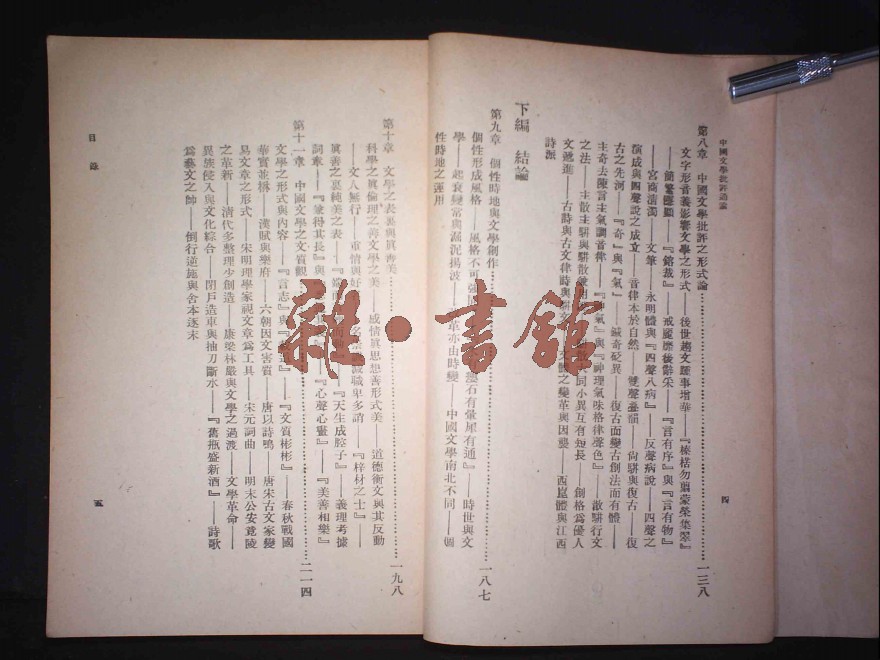 中國文學批評通論
四
第八章　中國文學批評之形式論………一三八
文字形音義影響文學之形式——後世趨文踵事增華——『榛楛勿翦蒙榮集翠』
——簡繁隱顯——『鎔裁』——戒麗靡後辭采——『言有序』與『言有物』
——宮商清濁——文筆——永明體與『四聲八病』——反聲病說——四聲之
演成與四聲說之成立——音律本於自然——尚駢與復古——復
古之先河——『奇』與『氣』——誠奇砭異——復古而變古創法而有體——
主奇去陳言主氣調音律——『氣』與『神理氣味格律聲色』——散駢行文
之法——主散主駢與駢散同小異互有短長——創格爲優人
文遞進——古詩與古文律時與之變革與因襲——西崑體與江西
詩派
下編　結論
第九章　個性時地與文學創作………一八七
個性形成風格——風格不可強——石有暈犀有通』——時世與文
學——起衰變常與漏沉揚波——革亦由時變——中國文學南北不同——個
性時地之運用
第十章　文學之表裏與眞善美………一九八
科學之眞倫理之善文學之美——感情眞思想善形式美——道德衞文與其反動
——文人無行——重情與好——職卑多誚——『梓材之士』——
眞善之裏純美之表——『天生成腔子』——義理考據
詞章——『兼得其長』與——『心聲心畫』——『美善相樂』
第十一章　中國文學之文質觀………二一四
文學之形式與內容——『言志』與——『文質彬彬』——春秋戰國
華實並茂——漢賦與樂府——六朝因文害質——唐以詩鳴——唐宋古文家變
易文章之形式——宋明理學家視文章爲工具——宋元詞曲——明末公安竟陵
之革新——清代多整理少創造——康梁林嚴與文學之過渡——文學革命——
異族侵入與文化綜合——閉戶造車與抽刀斷水——『舊瓶盛新酒』——詩歌
爲藝文之帥——倒行逆施與舍本逐末
目錄
五
雜·書館